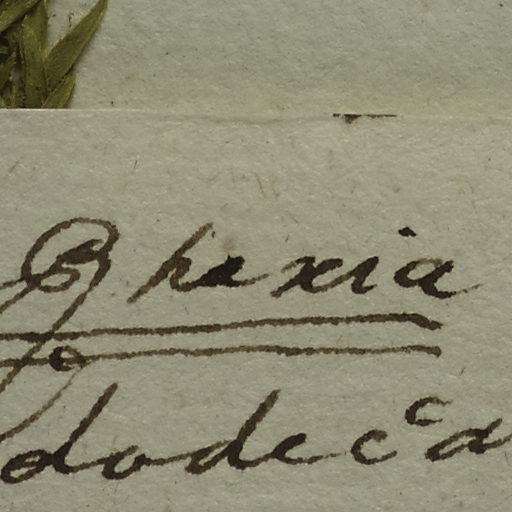 Rhexia
dodeca